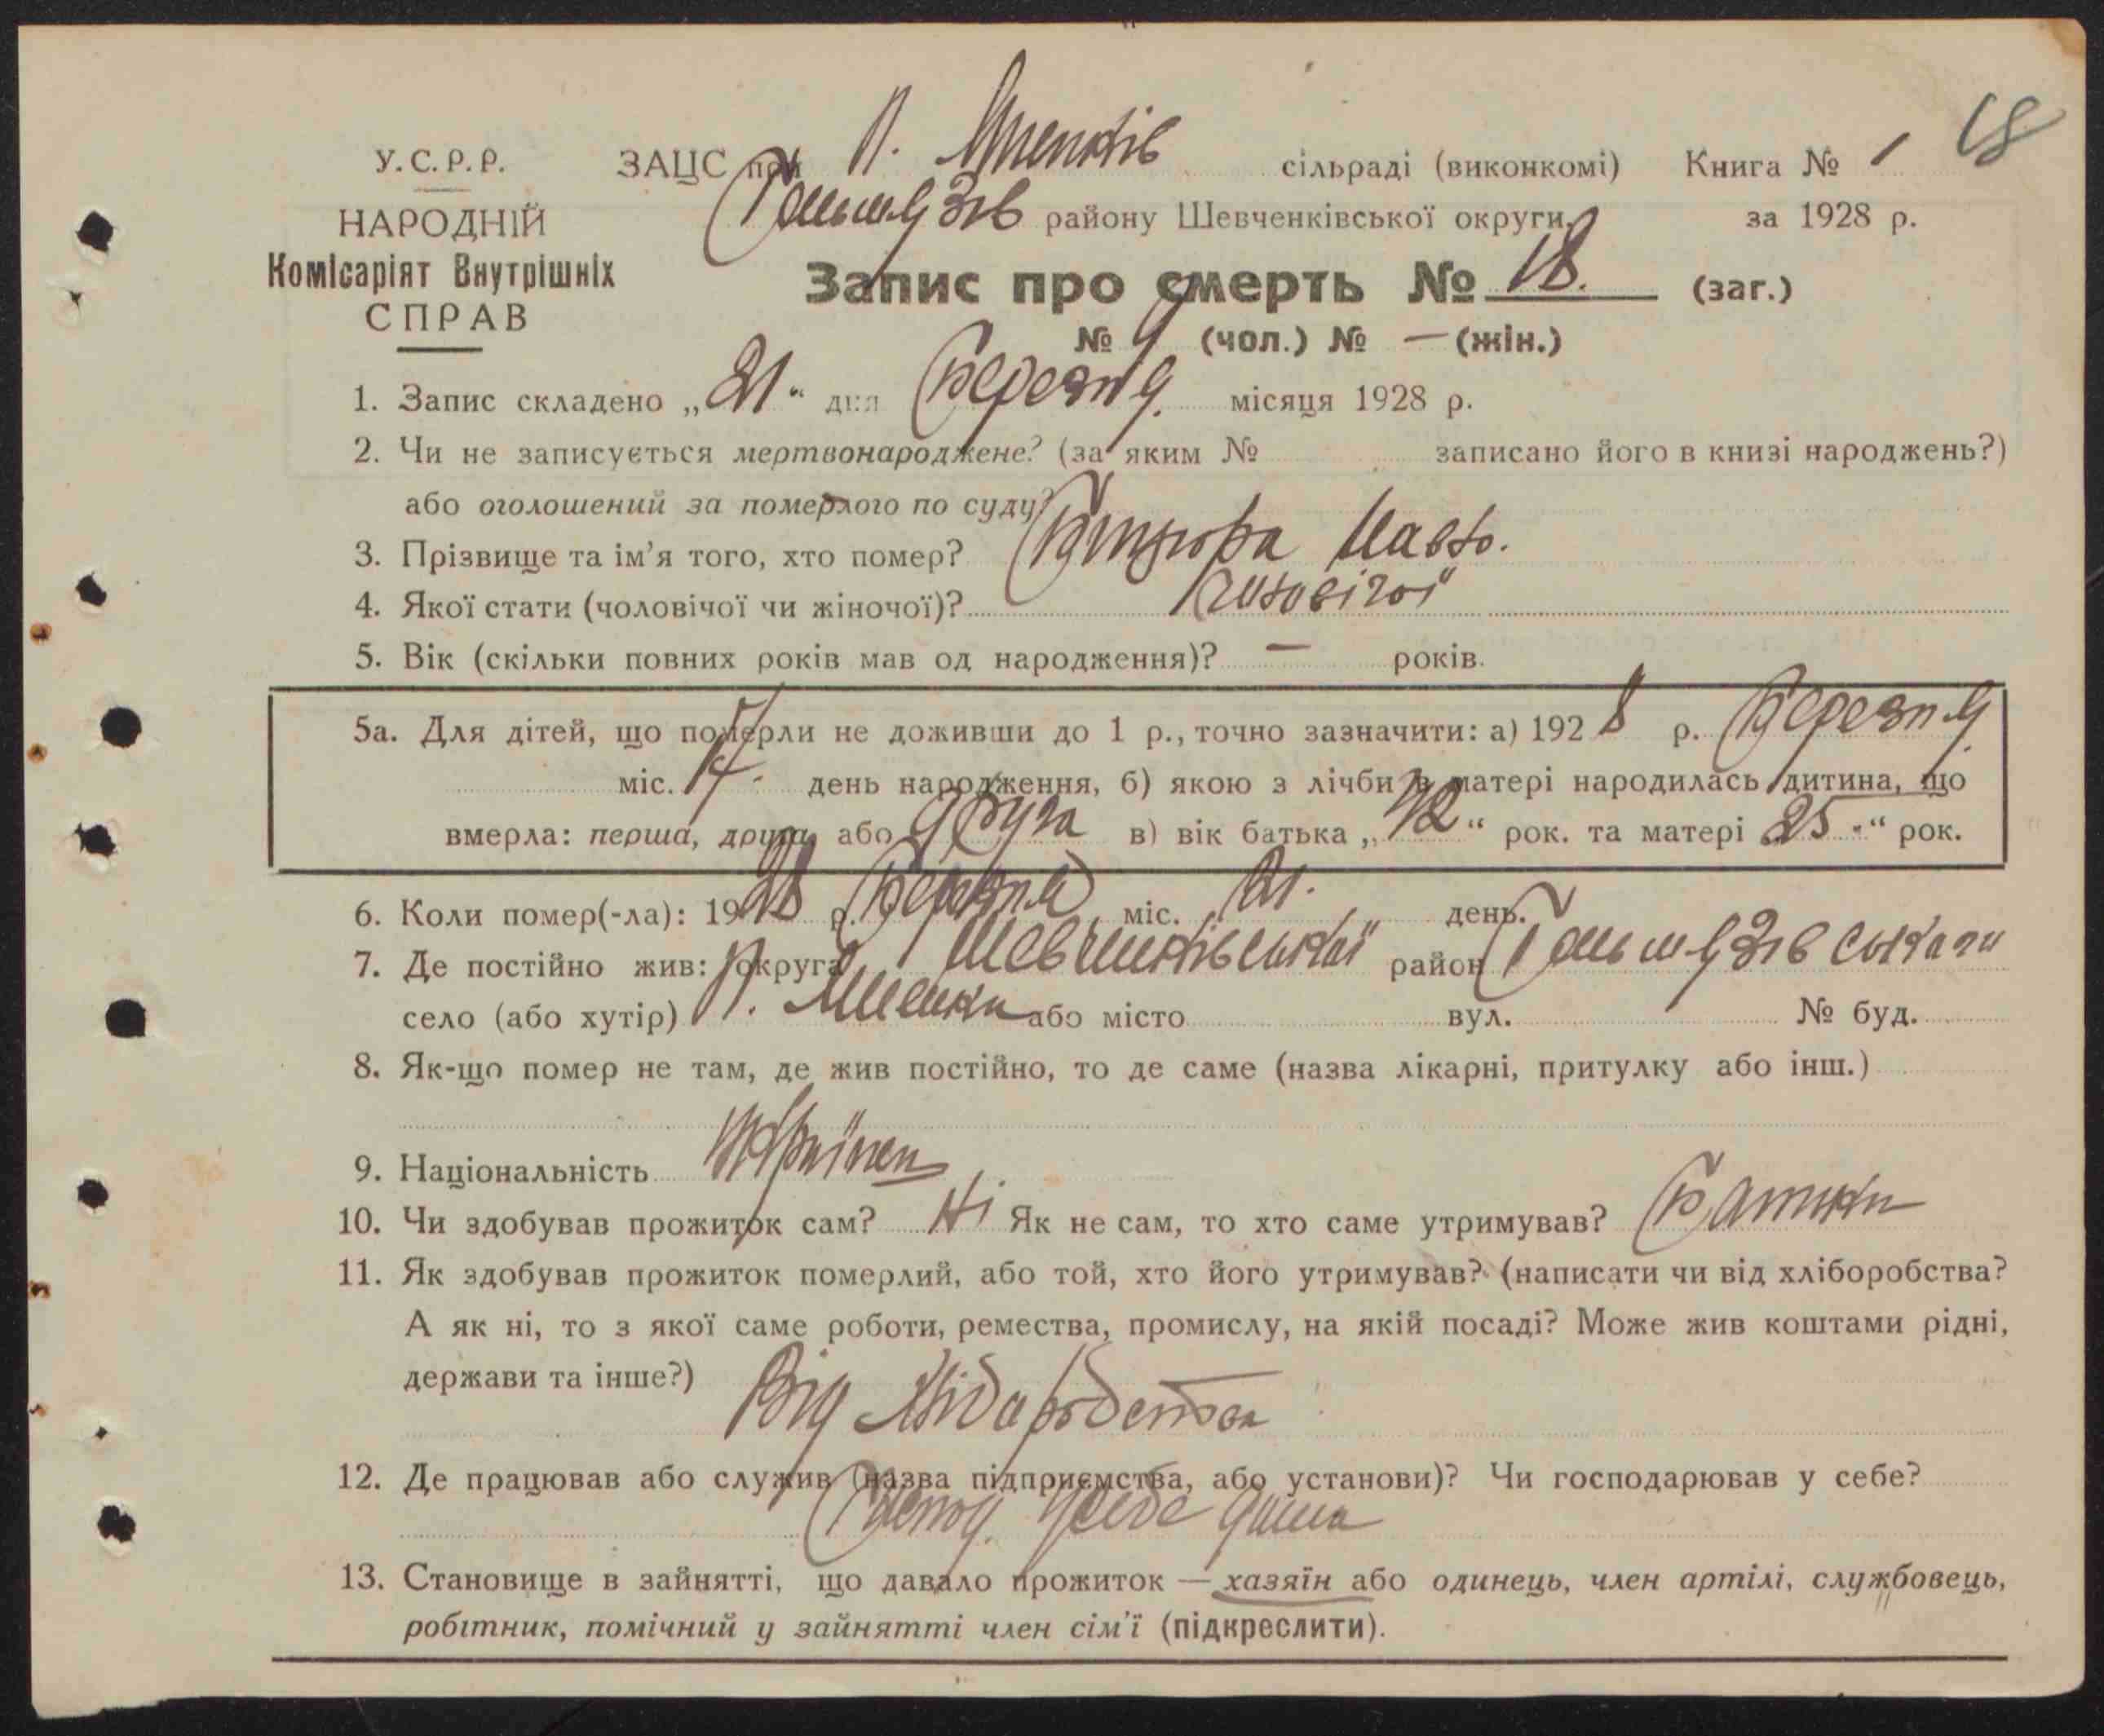 18
У.С.Р.Р. ЗАЦС при П. сільраді (виконкомі) Книга № 1
НАРОДНІЙ району Шевченківської округи за 1928 р.
Комісаріят Внутрішніх
СПРАВ
Запис про смерть № 18. (заг.)
№ 9 (чол.) № — (жін.)
1. Запис складено „21" дня Березня місяця 1928 р.
2. Чи не записується мертвонароджене? (за яким № записано його в книзі народжень?)
або оголошений за померлого по суду?
3. Прізвище та ім'я того, хто помер? Павло.
4. Якої стати (чоловічої чи жіночої)? Чоловічої
5. Вік (скільки повних років мав од народження)? — років.
5а. Для дітей, що померли не доживши до 1 р., точно зазначити: а) 1928 р. Березня
міс. день народження, б) якою з лічби в матері народилась дитина, що
вмерла: перша, друга, або друга в) вік батька „ " рок. та матері 25 " рок.
6. Коли помер(-ла): 1928 р. Березня міс. 21. день.
7. Де постійно жив: округа Шевченківської район
село (або хутір) П. або місто вул. № буд.
8. Як-що помер не там, де жив постійно, то де саме (назва лікарні, притулку або інш.)
9. Національність Українец
10. Чи здобував прожиток сам? Ні Як не сам, то хто саме утримував? Батьки
11. Як здобував прожиток померлий, або той, хто його утримував? (написати чи від хліборобства?
А як ні, то з якої саме роботи, ремества, промислу, на якій посаді? Може жив коштами рідні,
держави та інше?) Від Хліборобства
12. Де працював або служив (назва підприємства, або установи)? Чи господарював у себе?
Господ. у себе дома
13. Становище в зайнятті, що давало прожиток — хазяїн або одинець, член артілі, службовець,
робітник, помічний у зайнятті член сім'ї (підкреслити).